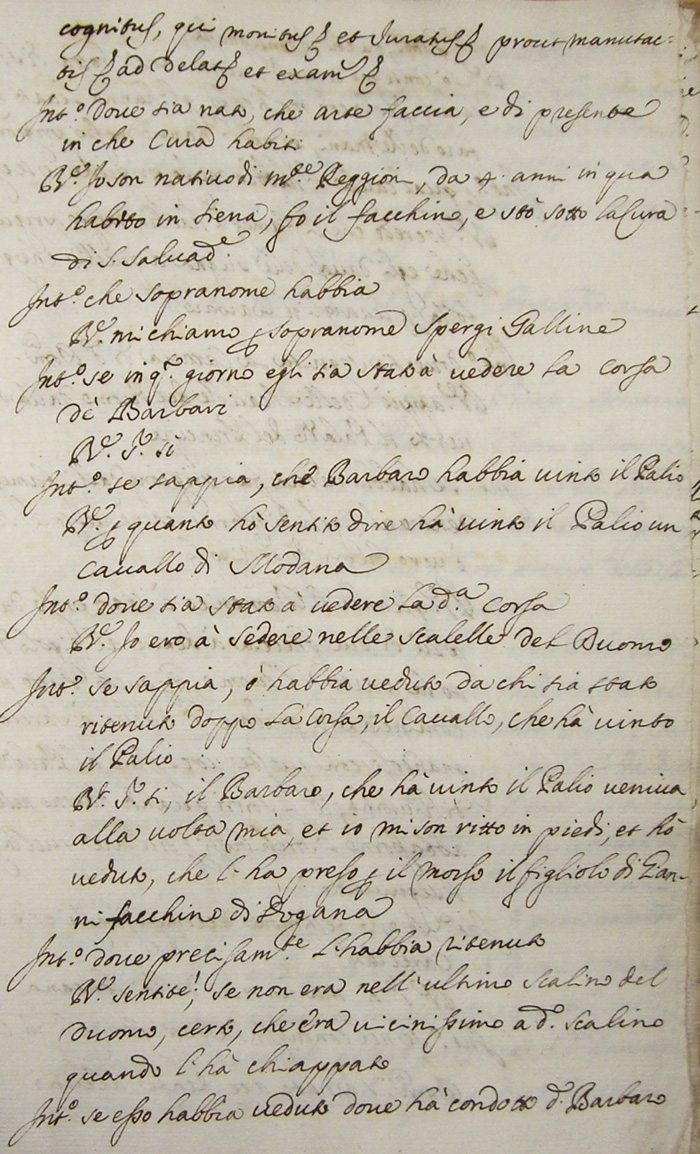 cognitus, qui monitus et Juratus prout manu tac=
tis ad delat et exam
Int.o Dove sia nato, che arte faccia, e di presente
in che Cura habiti
R.e Io son nativo di m.te Reggioni, da 4 anni in qua
habito in Siena, fo il facchino, e stò sotto la Cura
di S. Salvad.e
Int.o che sopranome habbia
R.e mi chiamo p sopranome Spergi Galline
Int.o se in q.o giorno egli sia stato à vedere la corsa
de Barbari
R.e S.r sì
Int.o se sappia, che Barbaro habbia vinto il Palio
R.e p quanto hò sentito dire hà vinto il Palio un
Cavallo di Modana
Int.o dove sia stato à vedere la d.a corsa
R.e Io ero à sedere nelle scalelle del Duomo
Int.o se sappia, ò habbia veduto da chi sia stato
ritenuto doppo la Corsa, il Cavallo, che hà vinto
il Palio
R.e S.r si, il Barbaro, che hà vinto il Palio veniva
alla volta mia, et io mi son ritto in piedi, et hò
veduto, che l'ha preso p il morso il figliolo di Gan=
ni facchino di Dogana
Int.o dove precisam.te l'habbia ritenuto
R.e sentite! se non era nell'ultimo scalino del
Duomo, certo, che era vicinissimo a d.o scalino
quando l'hà chiappato
Int.o se esso habbia veduto dove hà condotto d.o Barbaro